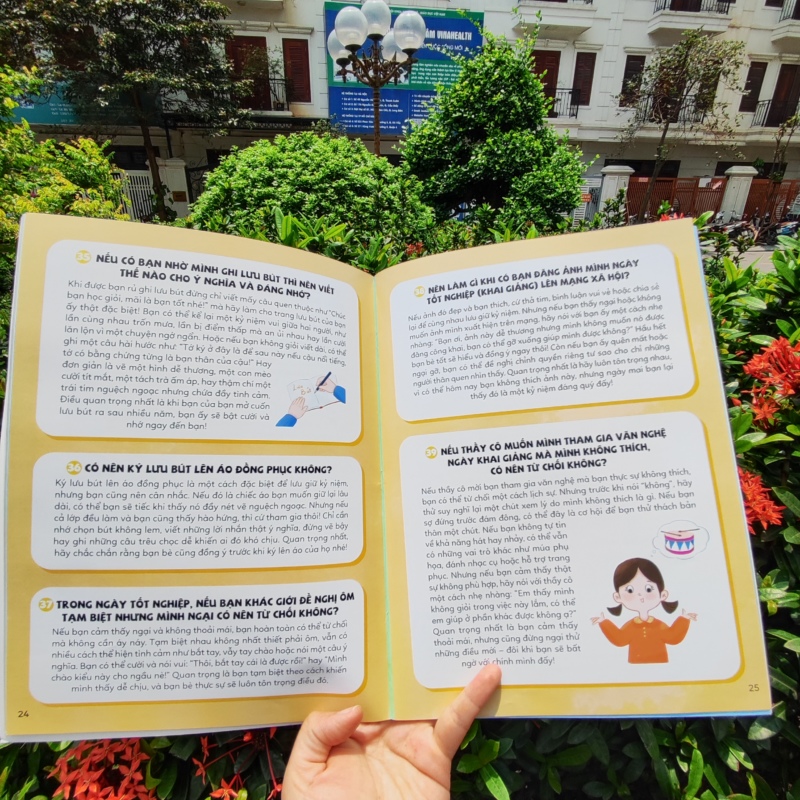 VINAHEALTH
35 NẾU CÓ BẠN NHỜ MÌNH GHI LƯU BÚT THÌ NÊN VIẾT
THẾ NÀO CHO Ý NGHĨA VÀ ĐÁNG NHỚ?
Khi được bạn rủ ghi lưu bút đừng chỉ viết mấy câu quen thuộc như "Chúc
bạn học giỏi, mãi là bạn tốt nhé!" mà hãy làm cho trang lưu bút của bạn
ấy thật đặc biệt! Bạn có thể kể lại một kỷ niệm vui giữa hai người, như
lần cùng nhau trốn mưa, lần bị điểm thấp mà an ủi nhau hay lần cười
lăn lộn vì một chuyện ngớ ngẩn. Hoặc nếu bạn không giỏi viết dài, có thể
ghi một câu hài hước như: "Tớ ký ở đây là để sau này nếu cậu nổi tiếng,
tớ có bằng chứng từng là bạn thân của cậu!" Hay
đơn giản là vẽ một hình dễ thương, một con mèo
cười tít mắt, một tách trà ấm áp, hay thậm chí một
trái tim nguệch ngoạc nhưng chứa đầy tình cảm.
Điều quan trọng nhất là khi bạn của bạn mở cuốn
lưu bút ra sau nhiều năm, bạn ấy sẽ bật cười và
nhớ ngay đến bạn!
36 CÓ NÊN KÝ LƯU BÚT LÊN ÁO ĐỒNG PHỤC KHÔNG?
Ký lưu bút lên áo đồng phục là một cách đặc biệt để lưu giữ kỷ niệm,
nhưng bạn cũng nên cân nhắc. Nếu đó là chiếc áo bạn muốn giữ lại lâu
dài, có thể bạn sẽ tiếc khi thấy nó đầy nét vẽ nguệch ngoạc. Nhưng nếu
cả lớp đều làm và bạn cũng thấy hào hứng, thì cứ tham gia thôi! Chỉ cần
nhớ chọn bút không lem, viết những lời nhắn thật ý nghĩa, đừng vẽ bậy
hay ghi những câu trêu chọc dễ khiến ai đó khó chịu. Quan trọng nhất,
hãy chắc chắn rằng bạn bè cũng đồng ý trước khi ký lên áo của họ nhé!
37 TRONG NGÀY TỐT NGHIỆP, NẾU BẠN KHÁC GIỚI ĐỀ NGHỊ ÔM
TẠM BIỆT NHƯNG MÌNH NGẠI CÓ NÊN TỪ CHỐI KHÔNG?
Nếu bạn cảm thấy ngại và không thoải mái, bạn hoàn toàn có thể từ chối
mà không cần áy náy. Tạm biệt nhau không nhất thiết phải ôm, vẫn có
nhiều cách thể hiện tình cảm như bắt tay, vẫy tay chào hoặc nói một câu ý
nghĩa. Bạn có thể cười và nói vui: "Thôi, bắt tay cái là được rồi!" hay "Mình
chào kiểu này cho ngầu nè!" Quan trọng là bạn tạm biệt theo cách khiến
mình thấy dễ chịu, và bạn bè thực sự sẽ luôn tôn trọng điều đó.
24
38 NÊN LÀM GÌ KHI CÓ BẠN ĐĂNG ẢNH MÌNH NGÀY
TỐT NGHIỆP (KHAI GIẢNG) LÊN MẠNG XÃ HỘI?
Nếu ảnh đó đẹp và bạn thích, cứ thả tim, bình luận vui vẻ hoặc chia sẻ
lại để cùng nhau lưu giữ kỷ niệm. Nhưng nếu bạn thấy ngại hoặc không
muốn ảnh mình xuất hiện trên mạng, hãy nói với bạn ấy một cách nhẹ
nhàng: "Bạn ơi, ảnh này dễ thương nhưng mình không muốn nó được
đăng công khai, bạn có thể gỡ xuống giúp mình được không?" Hầu hết
bạn bè tốt sẽ hiểu và đồng ý ngay thôi! Còn nếu bạn ấy quên mất hoặc
ngại gỡ, bạn có thể đề nghị chỉnh quyền riêng tư sao cho chỉ những
người thân quen nhìn thấy. Quan trọng nhất là hãy luôn tôn trọng nhau,
vì có thể hôm nay bạn không thích ảnh này, nhưng ngày mai bạn lại
thấy đó là một kỷ niệm đáng quý đấy!
39 NẾU THẦY CÔ MUỐN MÌNH THAM GIA VĂN NGHỆ
NGÀY KHAI GIẢNG MÀ MÌNH KHÔNG THÍCH,
CÓ NÊN TỪ CHỐI KHÔNG?
Nếu thầy cô mời bạn tham gia văn nghệ mà bạn thực sự không thích,
bạn có thể từ chối một cách lịch sự. Nhưng trước khi nói "không", hãy
thử suy nghĩ lại một chút xem lý do mình không thích là gì. Nếu bạn
sợ đứng trước đám đông, có thể đây là cơ hội để bạn thử thách bản
thân một chút. Nếu bạn không tự tin
về khả năng hát hay nhảy, có thể vẫn
có những vai trò khác như múa phụ
họa, đánh nhạc cụ hoặc hỗ trợ trang
phục. Nhưng nếu bạn cảm thấy thật
sự không phù hợp, hãy nói với thầy cô
một cách nhẹ nhàng: "Em thấy mình
không giỏi trong việc này lắm, có thể
em giúp ở phần khác được không ạ?"
Quan trọng nhất là bạn cảm thấy
thoải mái, nhưng cũng đừng ngại thử
những điều mới – đôi khi bạn sẽ bất
ngờ với chính mình đấy!
25